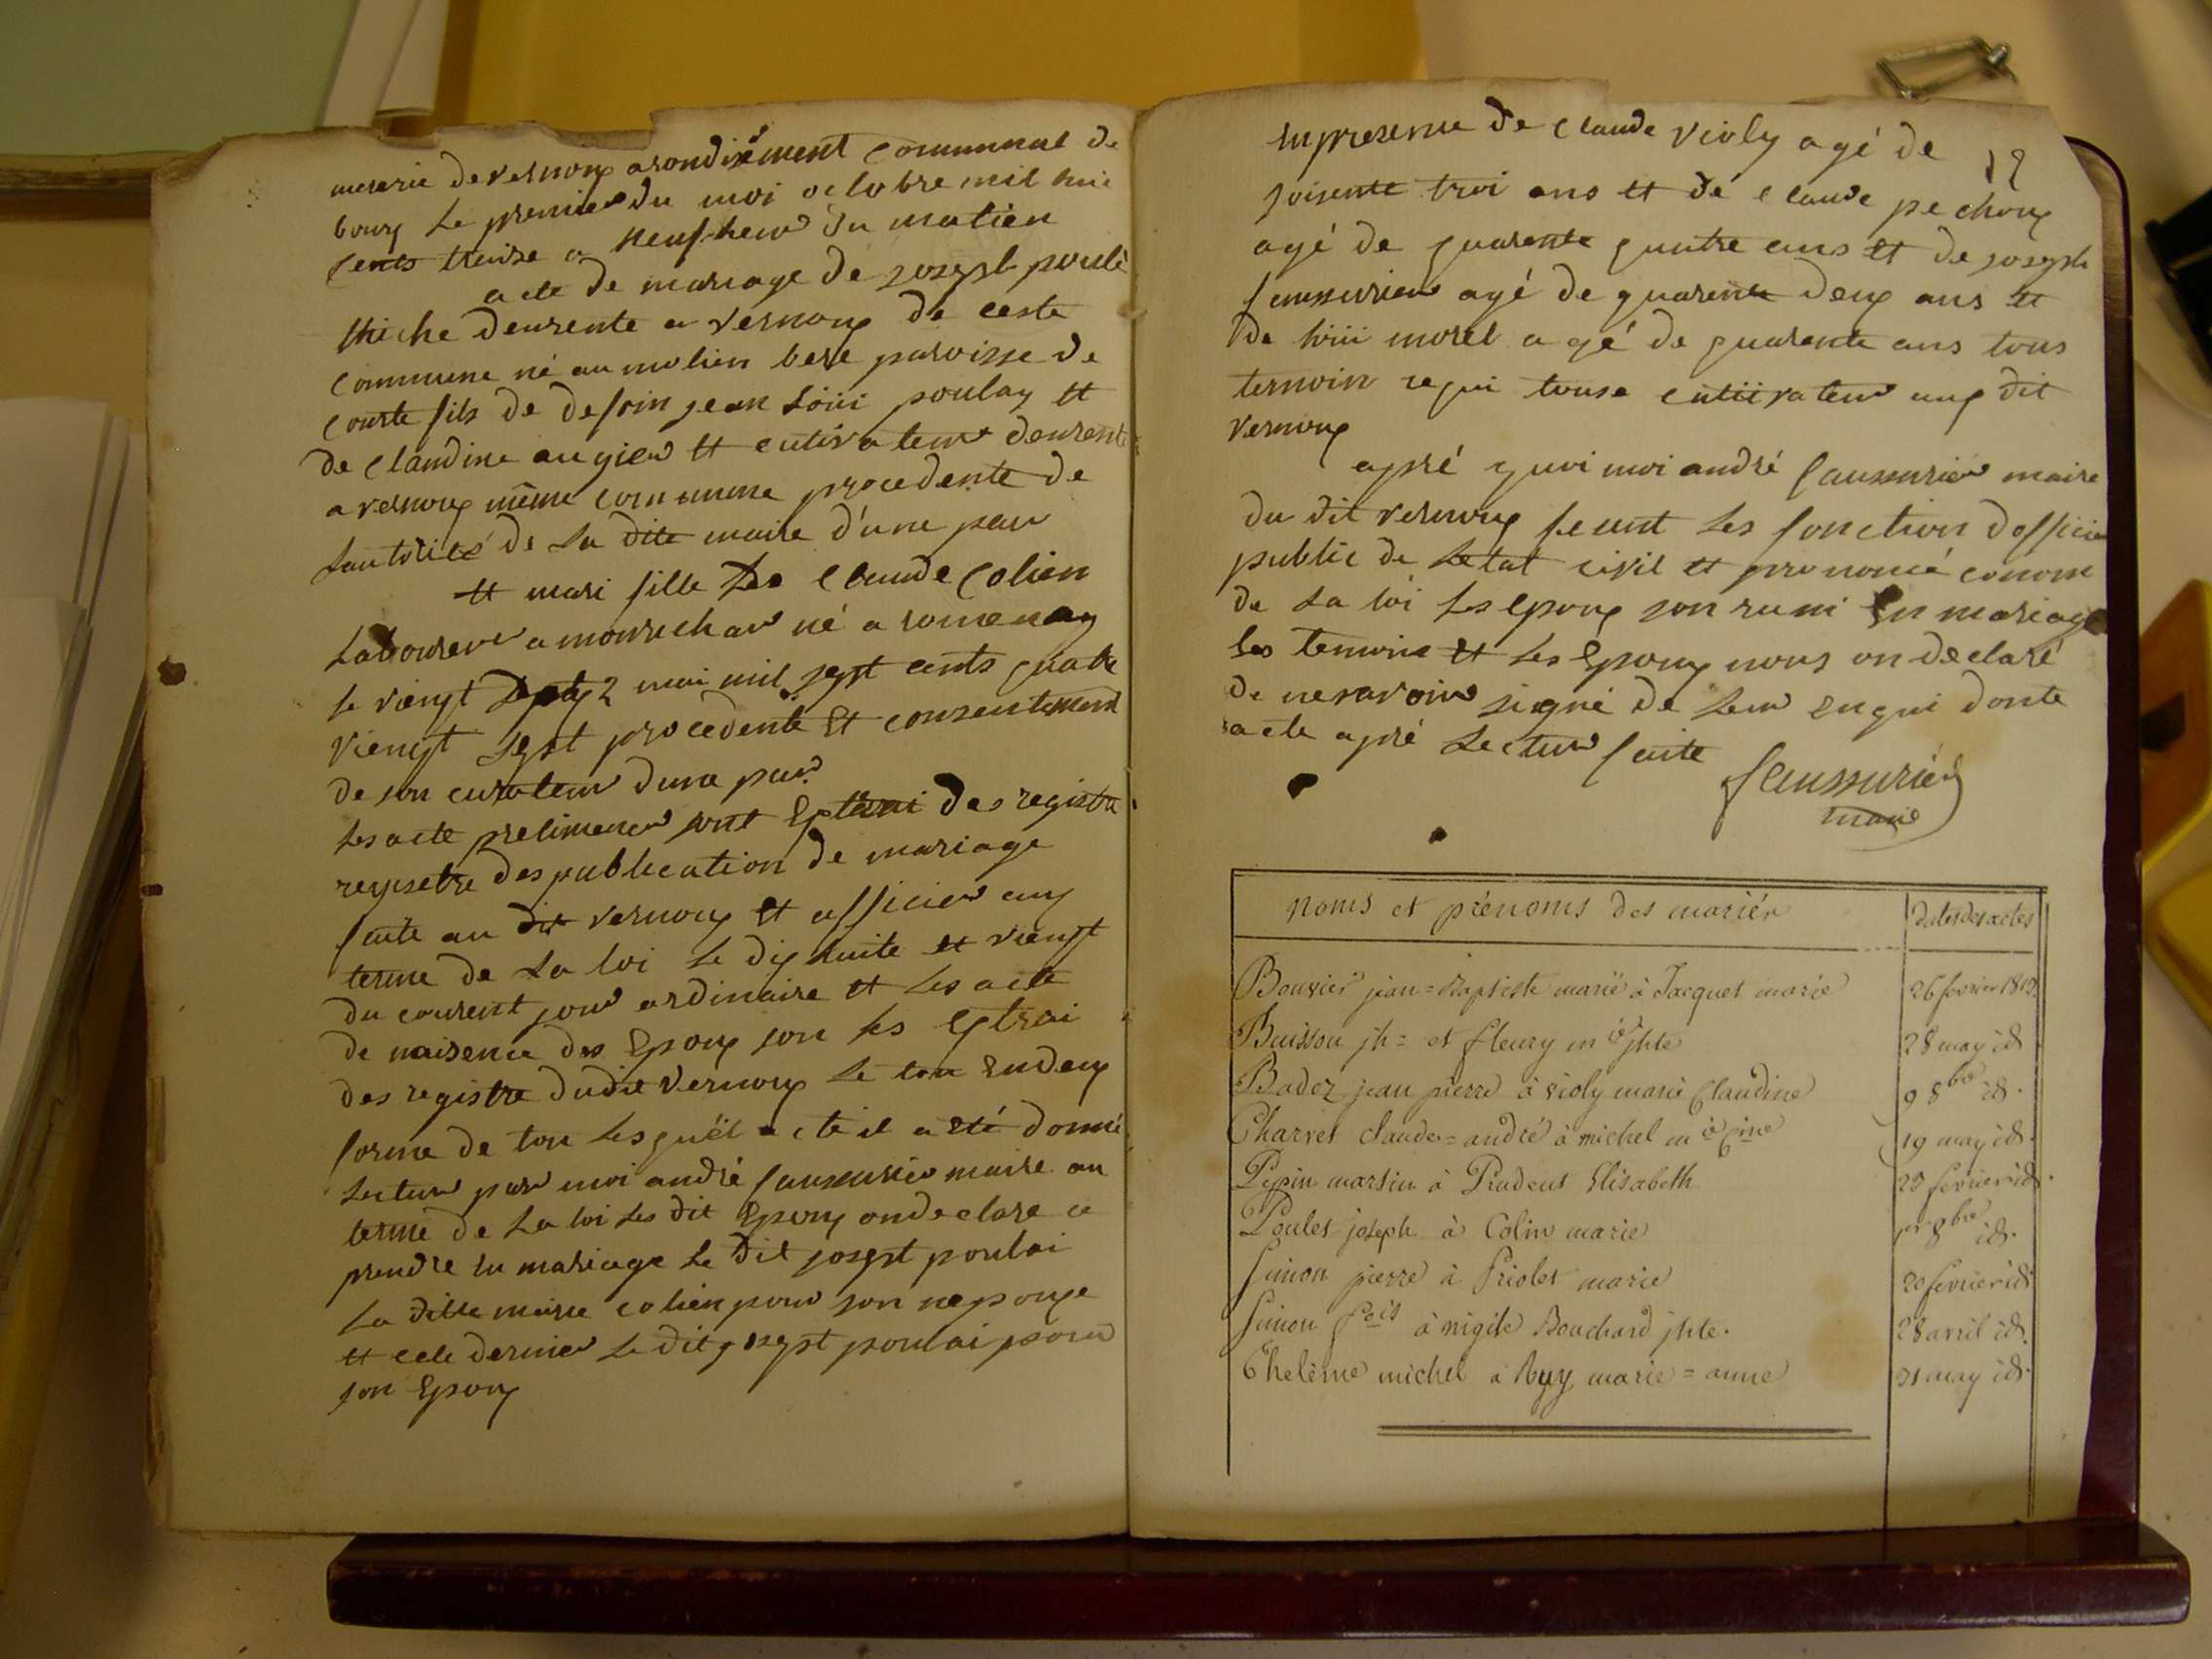 mererie de vernoux arondisement communal de
bourg le premier du moi octobre mil huie
cents treise a neuf heur du matien
acte de mariage de joseph poulé
thiche deurente a vernoux de ceste
commune né au molien bere paroisse de
courte fils de defoin jean loüi poulay et
de claudine augier et cutivateur deurente
a vernoux même commune procedente de
lautorité de la dite maire d'une par
et mari fille de claude colien
laboureur a monrichar né a romenay
le viengt mai mil sept cents quatre
viengt sept procedente et consentement
de son curateur dune par
les acte prelimener sont extrai des registre
regisetre des publication de mariage
faite au dit vernoux et afficier aux
terme de la loi le dix huite et viengt
du courent jour ardinaire et les acte
de naisence des Epoux son les extrai
des registre dudit vernoux le tou Endeux
forme de tou les quël acte il a été donné
lectur par moi andré faussurier maire au
terme de la loi les dit Epoux on declare a
prendre en mariage le dit josept poulai
la ditte marie colien pour son nepouxe
et cele dernier le dit josept poulai pour
son Epoux
En presense de claude violy agé de
soisente troi ans et de claude pechoux
agé de quarente quatre ans et de joseph
faussurier agé de quarente deux ans et
de loüi morel agé de quarente ans tous
temoin requi touse cutiivateur aux dit
vernoux
apré quoi moi andré faussurier maire
du dit vernoux feseant les fonction dofficier
public de letat civil et prononcé conom
de la loi les epoux son runi En mariage
les temoins et les Epoux nous on declaré
de ne savoir signé de leur enqui donte
acte apré lectur faite
faussurier
maire
noms et prénoms des mariés
dates des actes
Bouvier jean=Baptiste marié à Jacquet marie
26 fevrier 1813.
Buisson jh= et fleury m ie jhte
28 may id
Badez jean pierre à violy marie Claudine
9 8bre id.
Charvet claude=andré à michel m ie Cine
19 may id.
Pepin martin à Prudent Elisabeth
23 fevrier id.
Poulet joseph à Colin marie
1er 8bre id.
Simon pierre à Priolet marie
20 fevrier id
Simon fcois à nigite Bouchard jhte.
28 avril id.
Thelème michel à Ruy marie=anne
31 may id.